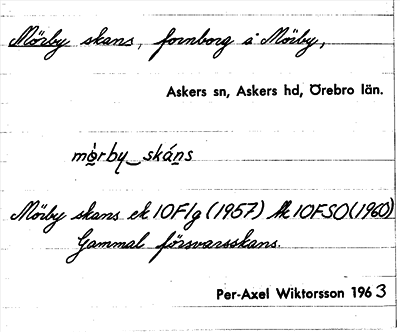 Mörby skans, fornborg å Mörby,
Askers sn, Askers hd, Örebro län.
mö̀rby‿skáns
Mörby skans ek 10F1g (1957) hk 10FSO (1960)
Gammal försvarsskans.
Per-Axel Wiktorsson 1963